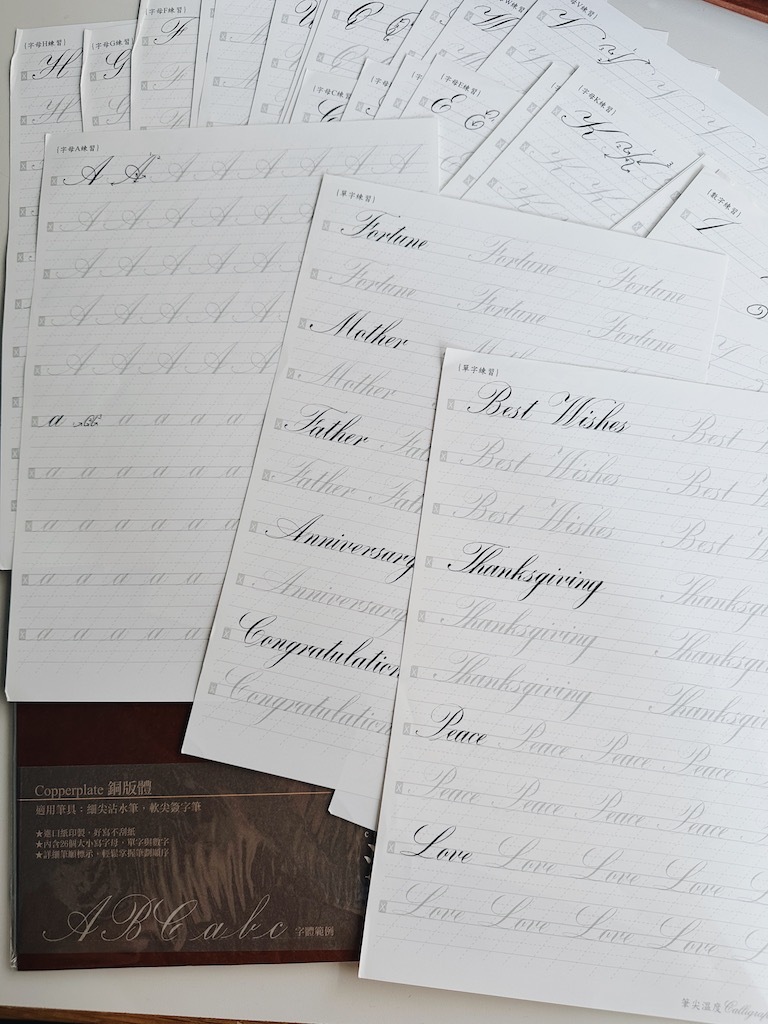 {字母H練習}
H
{字母G練習}
G
{字母F練習}
F
{字母C練習}
{字母E練習}
E E
{字母W練習}
W
{字母V練習}
V V
{字母K練習}
K K
K K K
{數字練習}
1
{字母A練習}
A A A A A A A A
A A A A A A
A A A A A
A A A A A
A A A A A
a a a a a a
a a a a a
a a a a a
a a a a a
a a a a a
{單字練習}
Fortune Fortune Fortune
Fortune Fortune Fortune
Mother
Mother
Father
Father
Anniversary
Anniversary
Congratulation
Congratulation
{單字練習}
Best Wishes Best
Best Wishes Best
Best Wishes Best
Thanksgiving
Thanksgiving
Thanksgiving
Peace Peace Peace Peace
Peace Peace Peace Peace
Love Love Love Love
Love Love Love Love
筆尖溫度
Copperplate 銅版體
適用筆具：細尖沾水筆，軟尖簽字筆
★進口紙印製，好寫不刮紙
★內含26個大小寫字母，單字與數字
★詳細筆順標示，輕鬆掌握筆劃順序
A B C a b c 字體範例